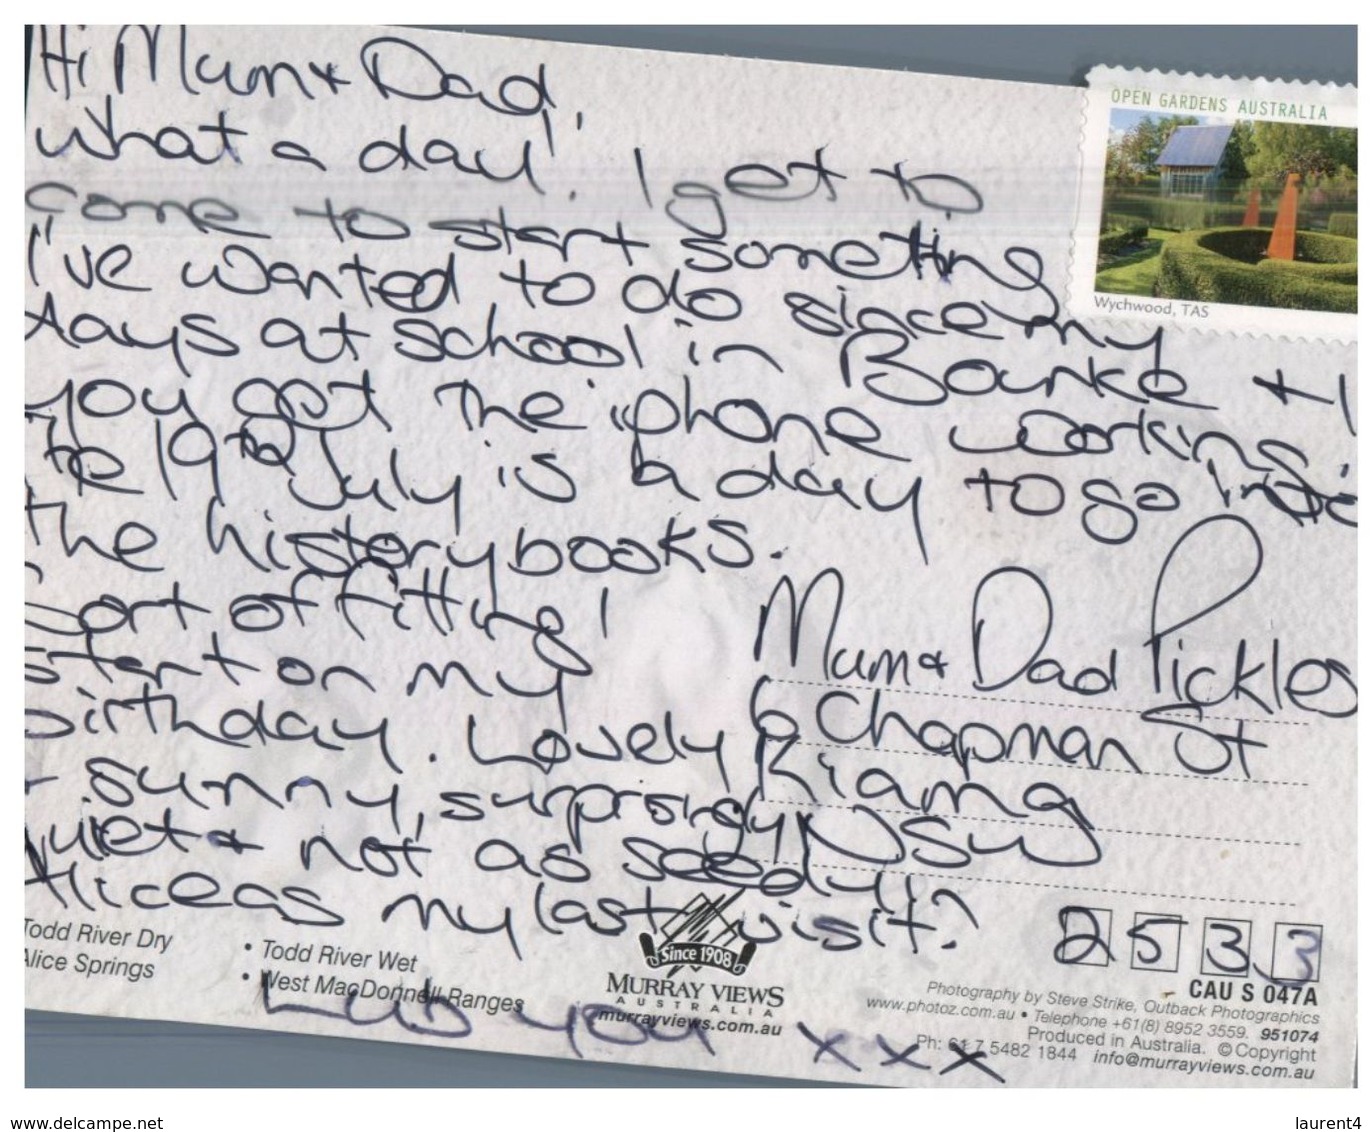 Hi Mum + Dad,
What a day! I get to
come to start something
I've wanted to do since my
days at school in Bourke + I
you get the iphone working.
The 19th July is a day to go into
the history books.
Sort of fitting I
start on my
birthday. Lovely
+ sunny, surprisingly
quiet + not as seedy
Alice as my last visit?
Lub you xxx
OPEN GARDENS AUSTRALIA
Wychwood, TAS
Mum + Dad Pickles
6 Chapman St
Kiama
NSW
2533
Todd River Dry
Alice Springs
• Todd River Wet
• West MacDonnell Ranges
Since 1908
MURRAY VIEWS
AUSTRALIA
murrayviews.com.au
CAU S 047A
Photography by Steve Strike, Outback Photographics
www.photoz.com.au • Telephone +61(8) 8952 3559. 951074
Produced in Australia. © Copyright
Ph: 61 7 5482 1844 info@murrayviews.com.au
www.delcampe.net
laurent4